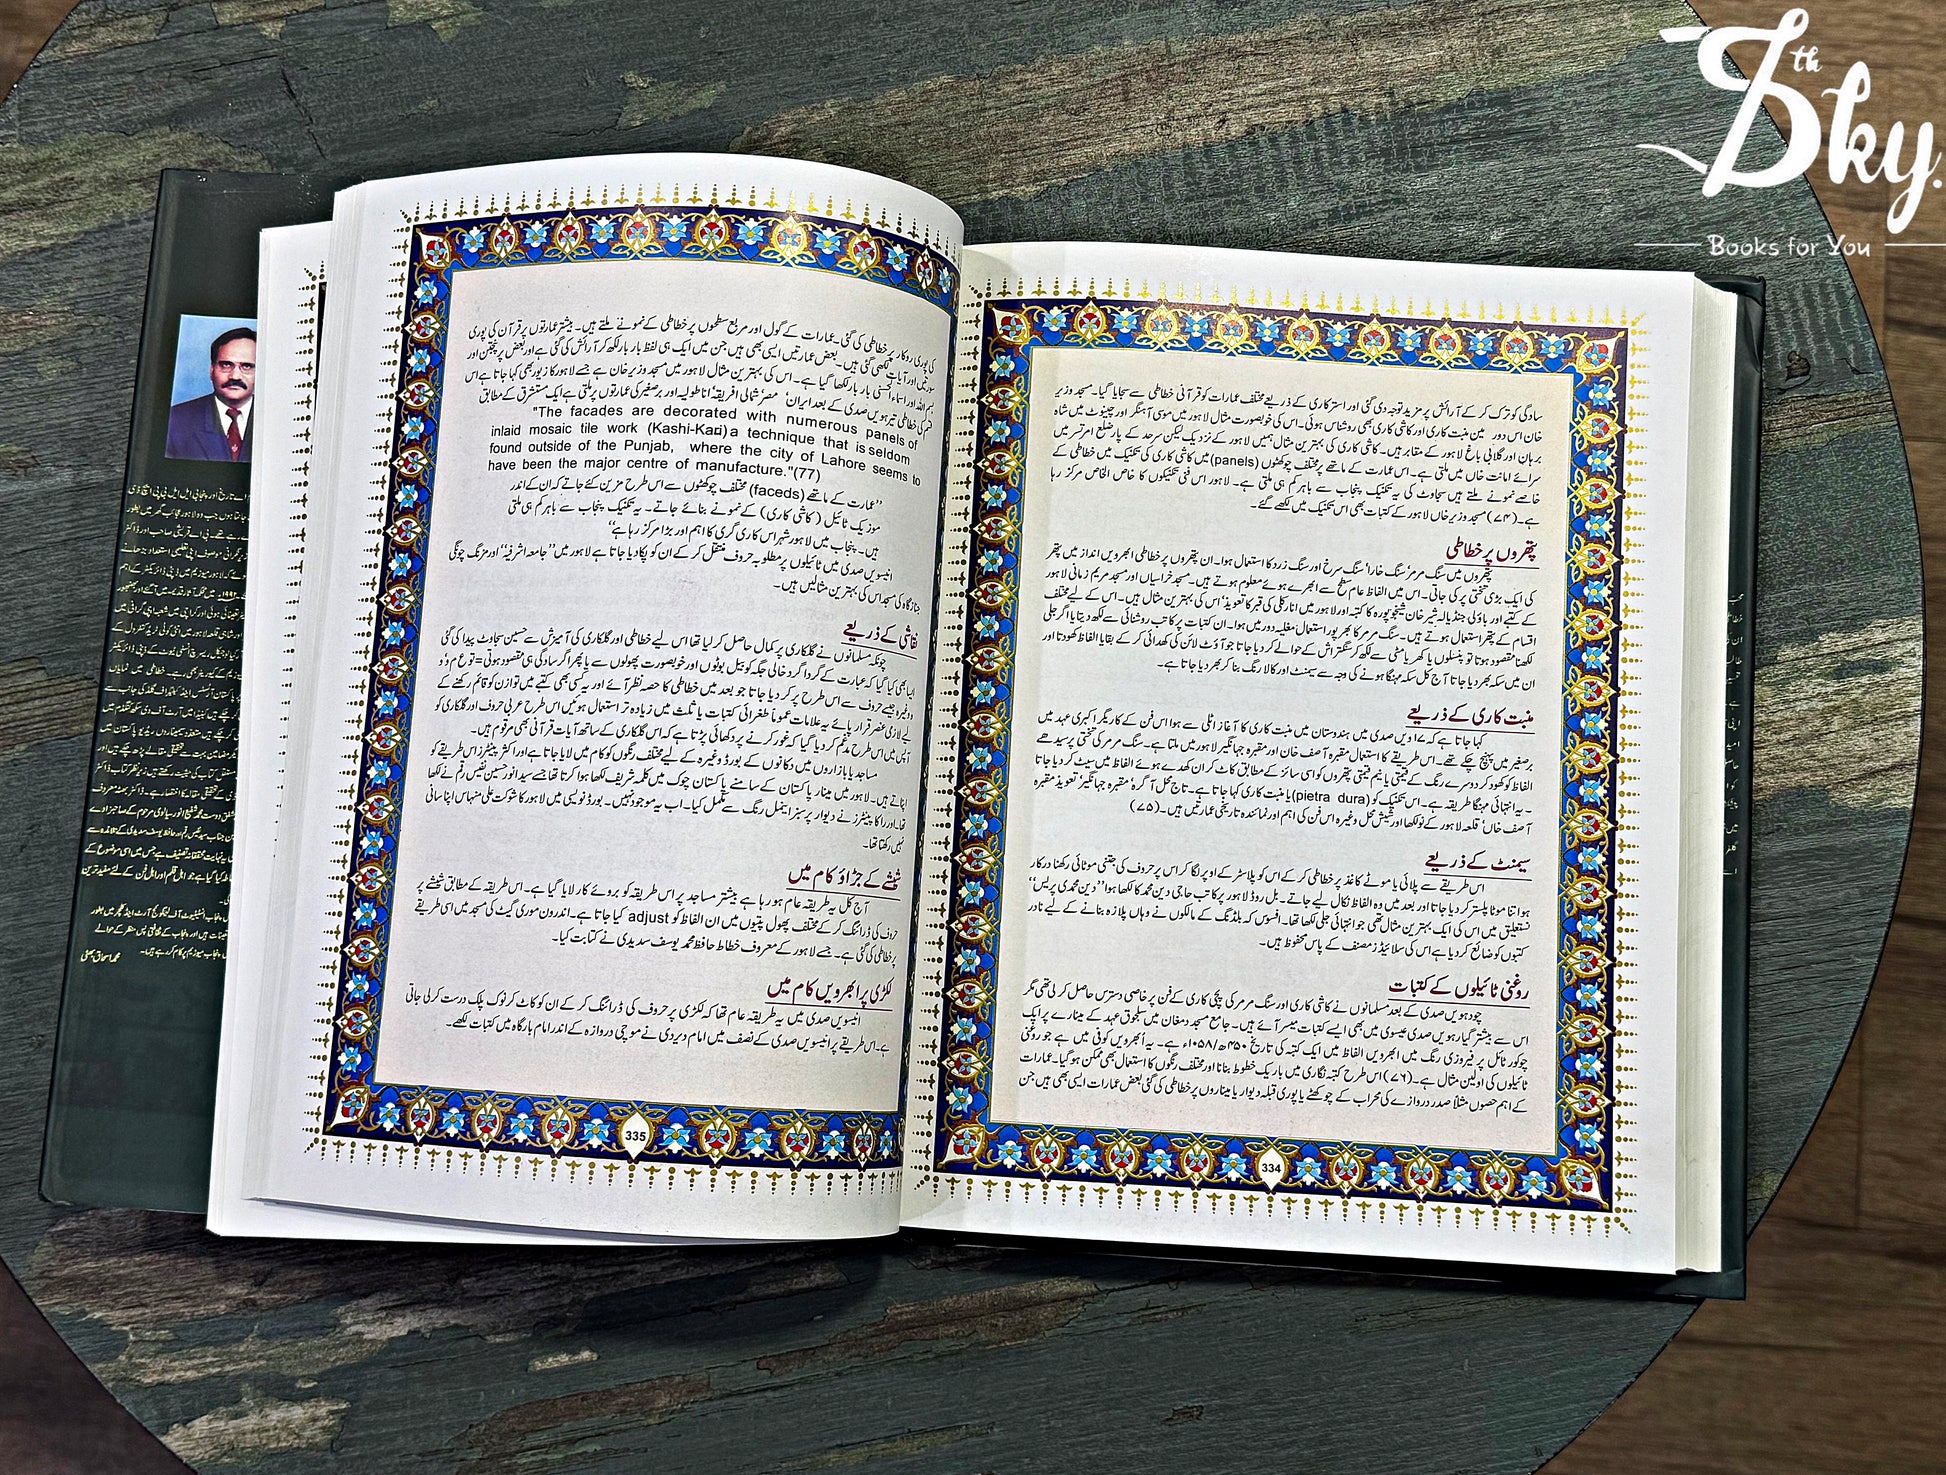 7th Sky.
Books for You
سادگی کو ترک کر کے آرائش پر مزید توجہ دی گئی اور استرکاری کے ذریعے مختلف عمارات کو قرآنی خطاطی سے سجایا گیا۔ مسجد وزیر
خان اس دور میں منبت کاری اور کاشی کاری بھی روشناس ہوئی۔ اس کی خوبصورت مثال لاہور میں موسیٰ آہنگر اور چینوٹ میں شاہ
برہان اور گلابی باغ لاہور کے مقابر ہیں۔ کاشی کاری کی بہترین مثال ہمیں لاہور کے نزدیک لیکن سرحد کے پار ضلع امرتسر میں
سرائے امانت خاں میں ملتی ہے۔ اس عمارت کے ماتھے پر مختلف چوکھٹوں (panels) میں کاشی کاری کی تکنیک میں خطاطی کے
خاصے نمونے ملتے ہیں سجاوٹ کی یہ تکنیک پنجاب سے باہر کم ہی ملتی ہے۔ لاہور اس فنی تکنیکوں کا خاص الخاص مرکز رہا
ہے۔ (۷۴) مسجد وزیر خاں لاہور کے کتبات بھی اس تکنیک میں لکھے گئے۔
پتھروں پر خطاطی
پتھروں میں سنگ مرمر، سنگ خارا، سنگ سرخ اور سنگ زرد کا استعمال ہوا۔ ان پتھروں پر خطاطی ابھرویں انداز میں پتھر
کی ایک بڑی تختی پر کی جاتی۔ اس میں الفاظ عام سطح سے ابھرے ہوئے معلوم ہوتے ہیں۔ مسجد خراسیاں اور مسجد مریم زمانی لاہور
کے کتبے اور باؤلی جنڈیالہ شیر خان شیخوپورہ کا کتبہ اور لاہور میں انارکلی کی قبر کا تعویذ اس کی بہترین مثال ہیں۔ اس کے لیے مختلف
اقسام کے پتھر استعمال ہوتے ہیں۔ سنگ مرمر کا بھرپور استعمال مغلیہ دور میں ہوا۔ ان کتبات پر کاتب روشنائی سے لکھ دیتا یا اگر جلی
لکھنا مقصود ہوتا تو پنسلوں یا کھریا مٹی سے لکھ کر سنگتراش کے حوالے کر دیا جاتا جو آؤٹ لائن کی کھدائی کر کے بقایا الفاظ کھودتا اور
ان میں سکہ بھر دیا جاتا آج کل سکہ مہنگا ہونے کی وجہ سے سیمنٹ اور کالا رنگ بنا کر بھر دیا جاتا ہے۔
منبت کاری کے ذریعے
کہا جاتا ہے کہ ۱۷ ویں صدی میں ہندوستان میں منبت کاری کا آغاز اٹلی سے ہوا اس فن کے کاریگر اکبری عہد میں
برصغیر میں پہنچ چکے تھے۔ اس طریقے کا استعمال مقبرہ آصف خان اور مقبرہ جہانگیر لاہور میں ملتا ہے۔ سنگ مرمر کی تختی پر سیدھے
الفاظ کو کھود کر دوسرے رنگ کے قیمتی یا نیم قیمتی پتھروں کو اسی سائز کے مطابق کاٹ کر ان کھدے ہوئے الفاظ میں سیٹ کر دیا جاتا
۔ یہ انتہائی مہنگا طریقہ ہے۔ اس تکنیک کو (pietra dura) یا منبت کاری کہا جاتا ہے۔ تاج محل آگرہ، مقبرہ جہانگیر، تعویذ مقبرہ
آصف خاں، قلعہ لاہور کے نولکھا اور شیش محل وغیرہ اس فن کی اہم اور نمائندہ تاریخی عمارتیں ہیں۔ (۷۵)
سیمنٹ کے ذریعے
اس طریقے سے پلائی یا موٹے کاغذ پر خطاطی کر کے اس کو پلاسٹر کے اوپر لگا کر اس پر حروف کی جتنی موٹائی رکھنا درکار
ہوا تنا موٹا پلستر کر دیا جاتا اور بعد میں وہ الفاظ نکال لیے جاتے۔ بل روڈ لاہور پر کاتب حاجی دین محمد کا لکھا ہوا ’’دین محمدی پریس‘‘
نستعلیق میں اس کی ایک بہترین مثال تھی جو انتہائی جلی لکھا تھا۔ افسوس کہ بلڈنگ کے مالکوں نے وہاں پلازہ بنانے کے لیے نادر
کتبوں کو ضائع کر دیا ہے اس کی سلائیڈز مصنف کے پاس محفوظ ہیں۔
روغنی ٹائیلوں کے کتبات
چودھویں صدی کے بعد مسلمانوں نے کاشی کاری اور سنگ مرمر کی پچی کاری کے فن پر خاصی دسترس حاصل کر لی تھی مگر
اس سے بیشتر گیارہویں صدی عیسوی میں بھی ایسے کتبات میسر آئے ہیں۔ جامع مسجد دمغان میں سلجوق عہد کے مینارے پر ایک
چوکور ٹائل پر فیروزی رنگ میں ابھرویں الفاظ میں ایک کتبہ کی تاریخ ۴۵۰ھ/۱۰۵۸ء ہے۔ یہ ابھرویں کوفی میں ہے جو روغنی
ٹائیلوں کی اولین مثال ہے۔ (۷۶) اس طرح کتبہ نگاری میں باریک خطوط بنانا اور مختلف رنگوں کا استعمال بھی ممکن ہو گیا۔ عمارات
کے اہم حصوں مثلاً صدر دروازے کی محراب کے چوکھٹے یا پوری قبلہ دیوار یا میناروں پر خطاطی کی گئی بعض عمارات ایسی بھی ہیں جن
334
کی پوری روکار پر خطاطی کی گئی۔ عمارات کے گول اور مربع سطحوں پر خطاطی کے نمونے ملتے ہیں۔ بیشتر عمارتوں پر قرآن کی پوری
سورتیں اور آیات لکھی گئی ہیں۔ بعض عمارتیں ایسی بھی ہیں جن میں ایک ہی لفظ بار بار لکھ کر آرائش کی گئی ہے اور بعض پر پنجتن اور
بسم اللہ اور اسماء الحسنیٰ بار بار لکھا گیا ہے۔ اس کی بہترین مثال لاہور میں مسجد وزیر خان ہے جسے لاہور کا زیور بھی کہا جاتا ہے اس
قسم کی خطاطی تیرہویں صدی کے بعد ایران، مصر، شمالی افریقہ، اناطولیہ اور برصغیر کی عمارتوں پر ملتی ہے ایک مستشرق کے مطابق
"The facades are decorated with numerous panels of
inlaid mosaic tile work (Kashi-Kari) a technique that is seldom
found outside of the Punjab, where the city of Lahore seems to
have been the major centre of manufacture."(77)
’’عمارت کے ماتھے (faceds) مختلف چوکھٹوں سے اس طرح مزین کئے جاتے کہ ان کے اندر
موزیک ٹائیل (کاشی کاری) کے نمونے بنائے جاتے۔ یہ تکنیک پنجاب سے باہر کم ہی ملتی
ہیں۔ پنجاب میں لاہور شہر اس کاری گری کا اہم اور بڑا مرکز رہا ہے‘‘
انیسویں صدی میں ٹائیلوں پر مطلوبہ حروف منتقل کر کے ان کو پکا دیا جاتا ہے لاہور میں ’’جامعہ اشرفیہ‘‘ اور مزنگ چونگی
جنازگاہ کی مسجد اس کی بہترین مثالیں ہیں۔
نقاشی کے ذریعے
چونکہ مسلمانوں نے گلکاری پر کمال حاصل کر لیا تھا اس لیے خطاطی اور گلکاری کی آمیزش سے حسین سجاوٹ پیدا کی گئی
ایسا بھی کیا گیا کہ عبارت کے گرداگرد خالی جگہ کو بیل بوٹوں اور خوبصورت پھولوں سے یا پھر اگر سادگی ہی مقصود ہوتی تو ع م و د
وغیرہ جیسے حروف سے اس طرح پر کر دیا جاتا جو بعد میں خطاطی کا حصہ نظر آئے اور یہ کسی بھی کتبے میں توازن کو قائم رکھنے کے
لیے لازمی عنصر قرار پائے یہ علامات عموماً طغرائی کتبات یا ثلث میں زیادہ تر استعمال ہوئیں اس طرح عربی حروف اور گلکاری کو
آپس میں اس طرح مدغم کر دیا گیا کہ غور کرنے پر دکھائی پڑتا ہے کہ اس گلکاری کے ساتھ آیات قرآنی بھی مرقوم ہیں۔
مساجد یا بازاروں میں دکانوں کے بورڈ وغیرہ کے لیے مختلف رنگوں کو کام میں لایا جاتا ہے اور اکثر پینٹرز اس طریقے کو
اپناتے ہیں۔ لاہور میں مینار پاکستان کے سامنے پاکستان چوک میں کلمہ شریف لکھا ہوا کرتا تھا جسے سید انور حسین نفیس رقم نے لکھا
تھا۔ اور راکا پینٹرز نے دیوار پر سبز اینیمل رنگ سے مکمل کیا۔ اب یہ موجود نہیں۔ بورڈ نویسی میں لاہور کا شوکت علی منہاس اپنا سانی
نہیں رکھتا تھا۔
شیشے کے جڑاؤ کام میں
آج کل یہ طریقہ عام ہو رہا ہے بیشتر مساجد پر اس طریقہ کو بروئے کار لایا گیا ہے۔ اس طریقہ کے مطابق شیشے پر
حروف کی ڈرائنگ کر کے مختلف پھول پتیوں میں ان الفاظ کو adjust کیا جاتا ہے۔ اندرون موری گیٹ کی مسجد میں اسی طریقے
پر خطاطی کی گئی ہے۔ جسے لاہور کے معروف خطاط حافظ محمد یوسف سدیدی نے کتابت کیا۔
لکڑی پر ابھرویں کام میں
انیسویں صدی میں یہ طریقہ عام تھا کہ لکڑی پر حروف کی ڈرائنگ کر کے ان کو کاٹ کر نوک پلک درست کر لی جاتی
ہے۔ اس طریقے پر انیسویں صدی کے نصف میں امام ویردی نے موچی دروازہ کے اندر امام بارگاہ میں کتبات لکھے۔
335
محمد اسحاق بھٹی